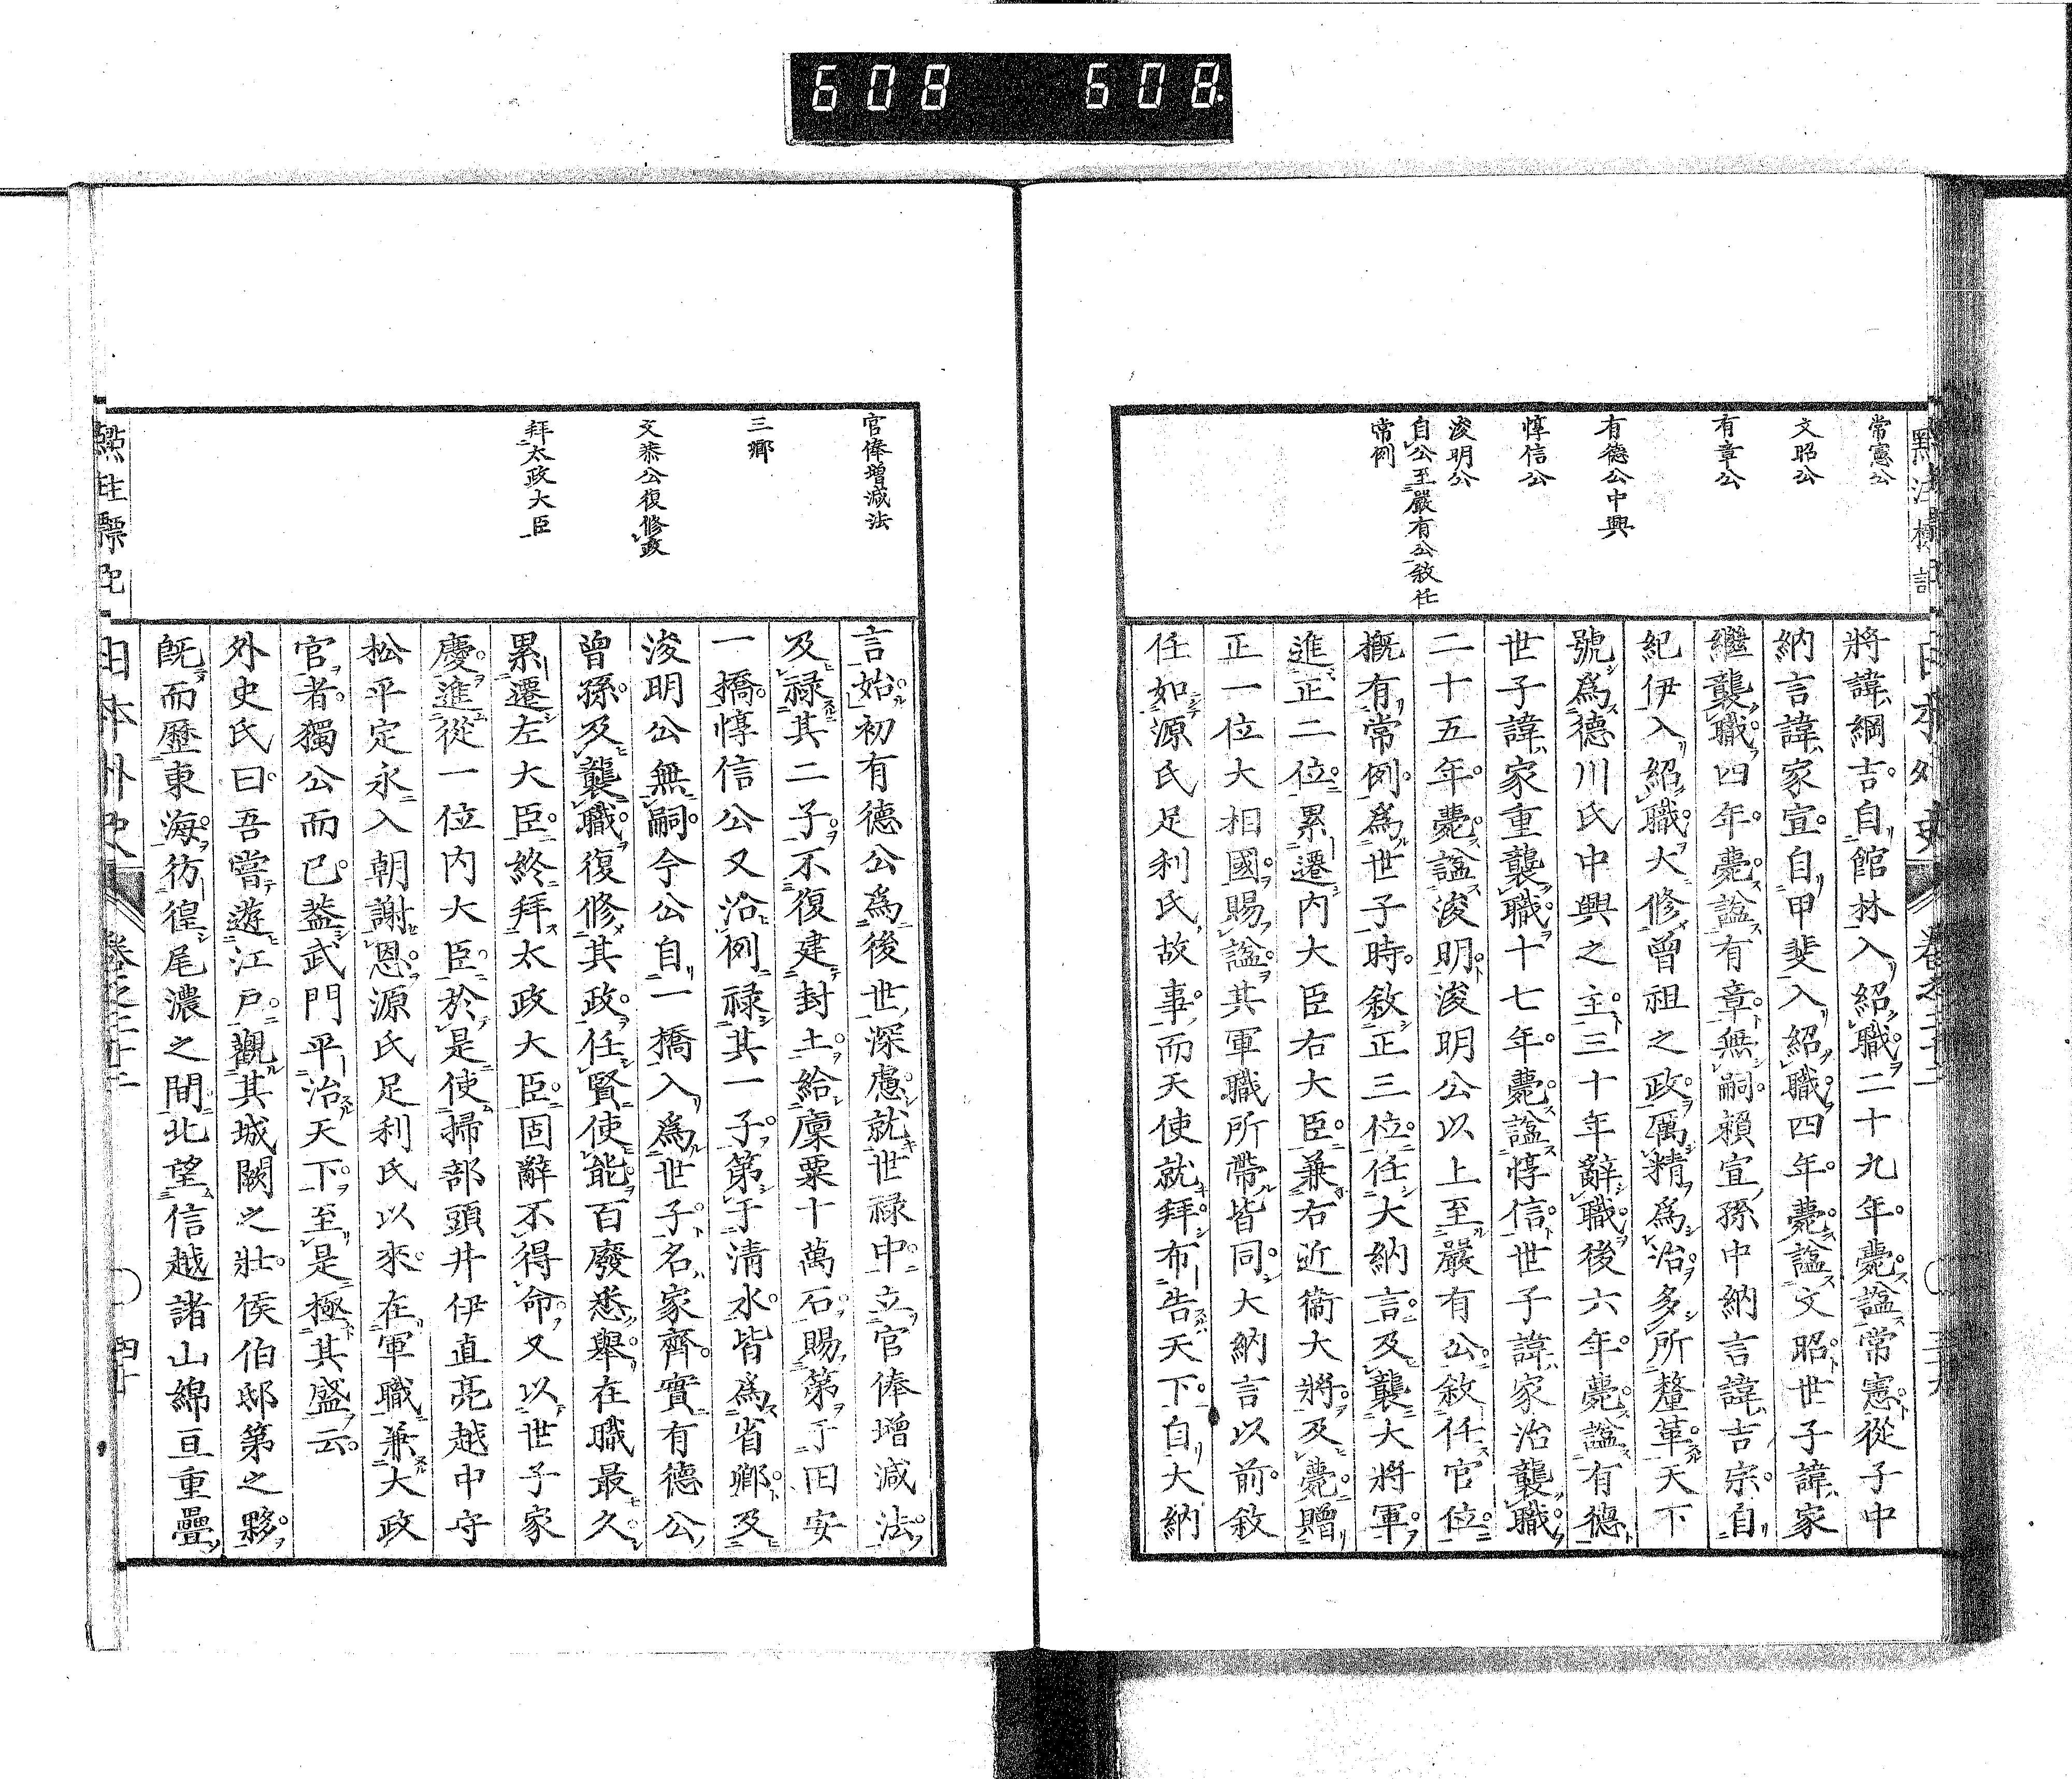 608 608
常憲公
文昭公
有章公
有德公中興
惇信公
浚明公
自公至嚴有公敘任
常例
將諱綱吉自館林入紹職二十九年薨諡常憲從子中
納言諱家宣自甲斐入紹職四年薨諡文昭世子諱家
繼襲職四年薨諡有章無嗣賴宣孫中納言諱吉宗自
紀伊入紹職大修曾祖之政厲精爲治多所釐革天下
號爲德川氏中興之主三十年辭職後六年薨諡有德
世子諱家重襲職十七年薨諡惇信世子諱家治襲職
二十五年薨諡浚明浚明公以上至嚴有公敘任官位
概有常例爲世子時敘正三位任大納言及襲大將軍
進正二位累遷內大臣右大臣兼右近衞大將及薨贈
正一位大相國賜諡其軍職所帶皆同大納言以前敘
任如源氏足利氏故事而天使就拜布告天下自大納
官俸增減法
三鄉
文恭公復修政
拜太政大臣
言始初有德公爲後世深慮就世祿中立官俸增減法
及祿其二子不復建封土給廩粟十萬石賜第于田安
一橋惇信公又沿例祿其一子第于清水皆爲省鄉及
浚明公無嗣今公自一橋入爲世子名家齊實有德公
曾孫及襲職復修其政任賢使能百廢悉舉在職最久
累遷左大臣終拜太政大臣固辭不得命又以世子家
慶進從一位內大臣於是使掃部頭井伊直亮越中守
松平定永入朝謝恩源氏足利氏以來在軍職兼大政
官者獨公而已蓋武門平治天下至是極其盛云
外史氏曰吾嘗遊江戶觀其城闕之壯侯伯邸第之夥
旣而歷東海彷徨尾濃之間北望信越諸山綿亘重疊